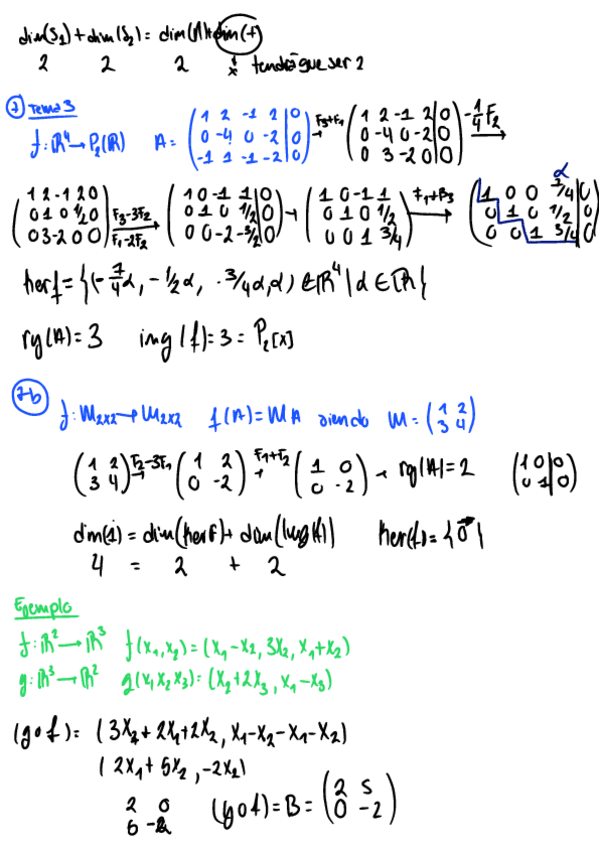 dim(S₁)+dim(S₂)= dim(A)+dim(f)
2 2 2 x tendrá que ser 2
7 Tema 3
f: ℝ⁴ → P₂(ℝ) A= (1 2 -1 2 | 0; 0 -4 0 -2 | 0; -1 1 -1 -2 | 0) F₃+F₁ → (1 2 -1 2 | 0; 0 -4 0 -2 | 0; 0 3 -2 0 | 0) -1/4 F₂ →
(1 2 -1 2 0; 0 1 0 1/2 0; 0 3 -2 0 0) F₃-3F₂ F₁-2F₂ → (1 0 -1 1 | 0; 0 1 0 1/2 | 0; 0 0 -2 -3/2 | 0) → (1 0 -1 1; 0 1 0 1/2; 0 0 1 3/4) F₁+B₃ → α (1 0 0 7/4 | 0; 0 1 0 1/2 | 0; 0 0 1 3/4 | 0)
ker f = {(-7/4 α, -1/2 α, -3/4 α, α) ∈ ℝ⁴ | α ∈ ℝ}
rg(A)=3 img(f)=3= P₂[x]
7b
f: M₂ₓ₂ → M₂ₓ₂ f(A)=MA siendo M= (1 2; 3 4)
(1 2; 3 4) F₂-3F₁ → (1 2; 0 -2) F₁+F₂ → (1 0; 0 -2) → rg(A)=2 (1 0 | 0; 0 1 | 0)
dim(1)= dim(ker f)+ dim(img(f)) Ker(f)= {0⃗}
4 = 2 + 2
Ejemplo
f: ℝ² → ℝ³ f(x₁,x₂)=(x₁-x₂, 3x₂, x₁+x₂)
g: ℝ³ → ℝ² g(x₁ x₂ x₃)=(x₂+2x₃, x₁-x₃)
(g o f)= (3x₂+2x₁+2x₂, x₁-x₂-x₁-x₂)
(2x₁+5x₂, -2x₂)
2 0
5 -2 (g o f)=B= (2 5; 0 -2)